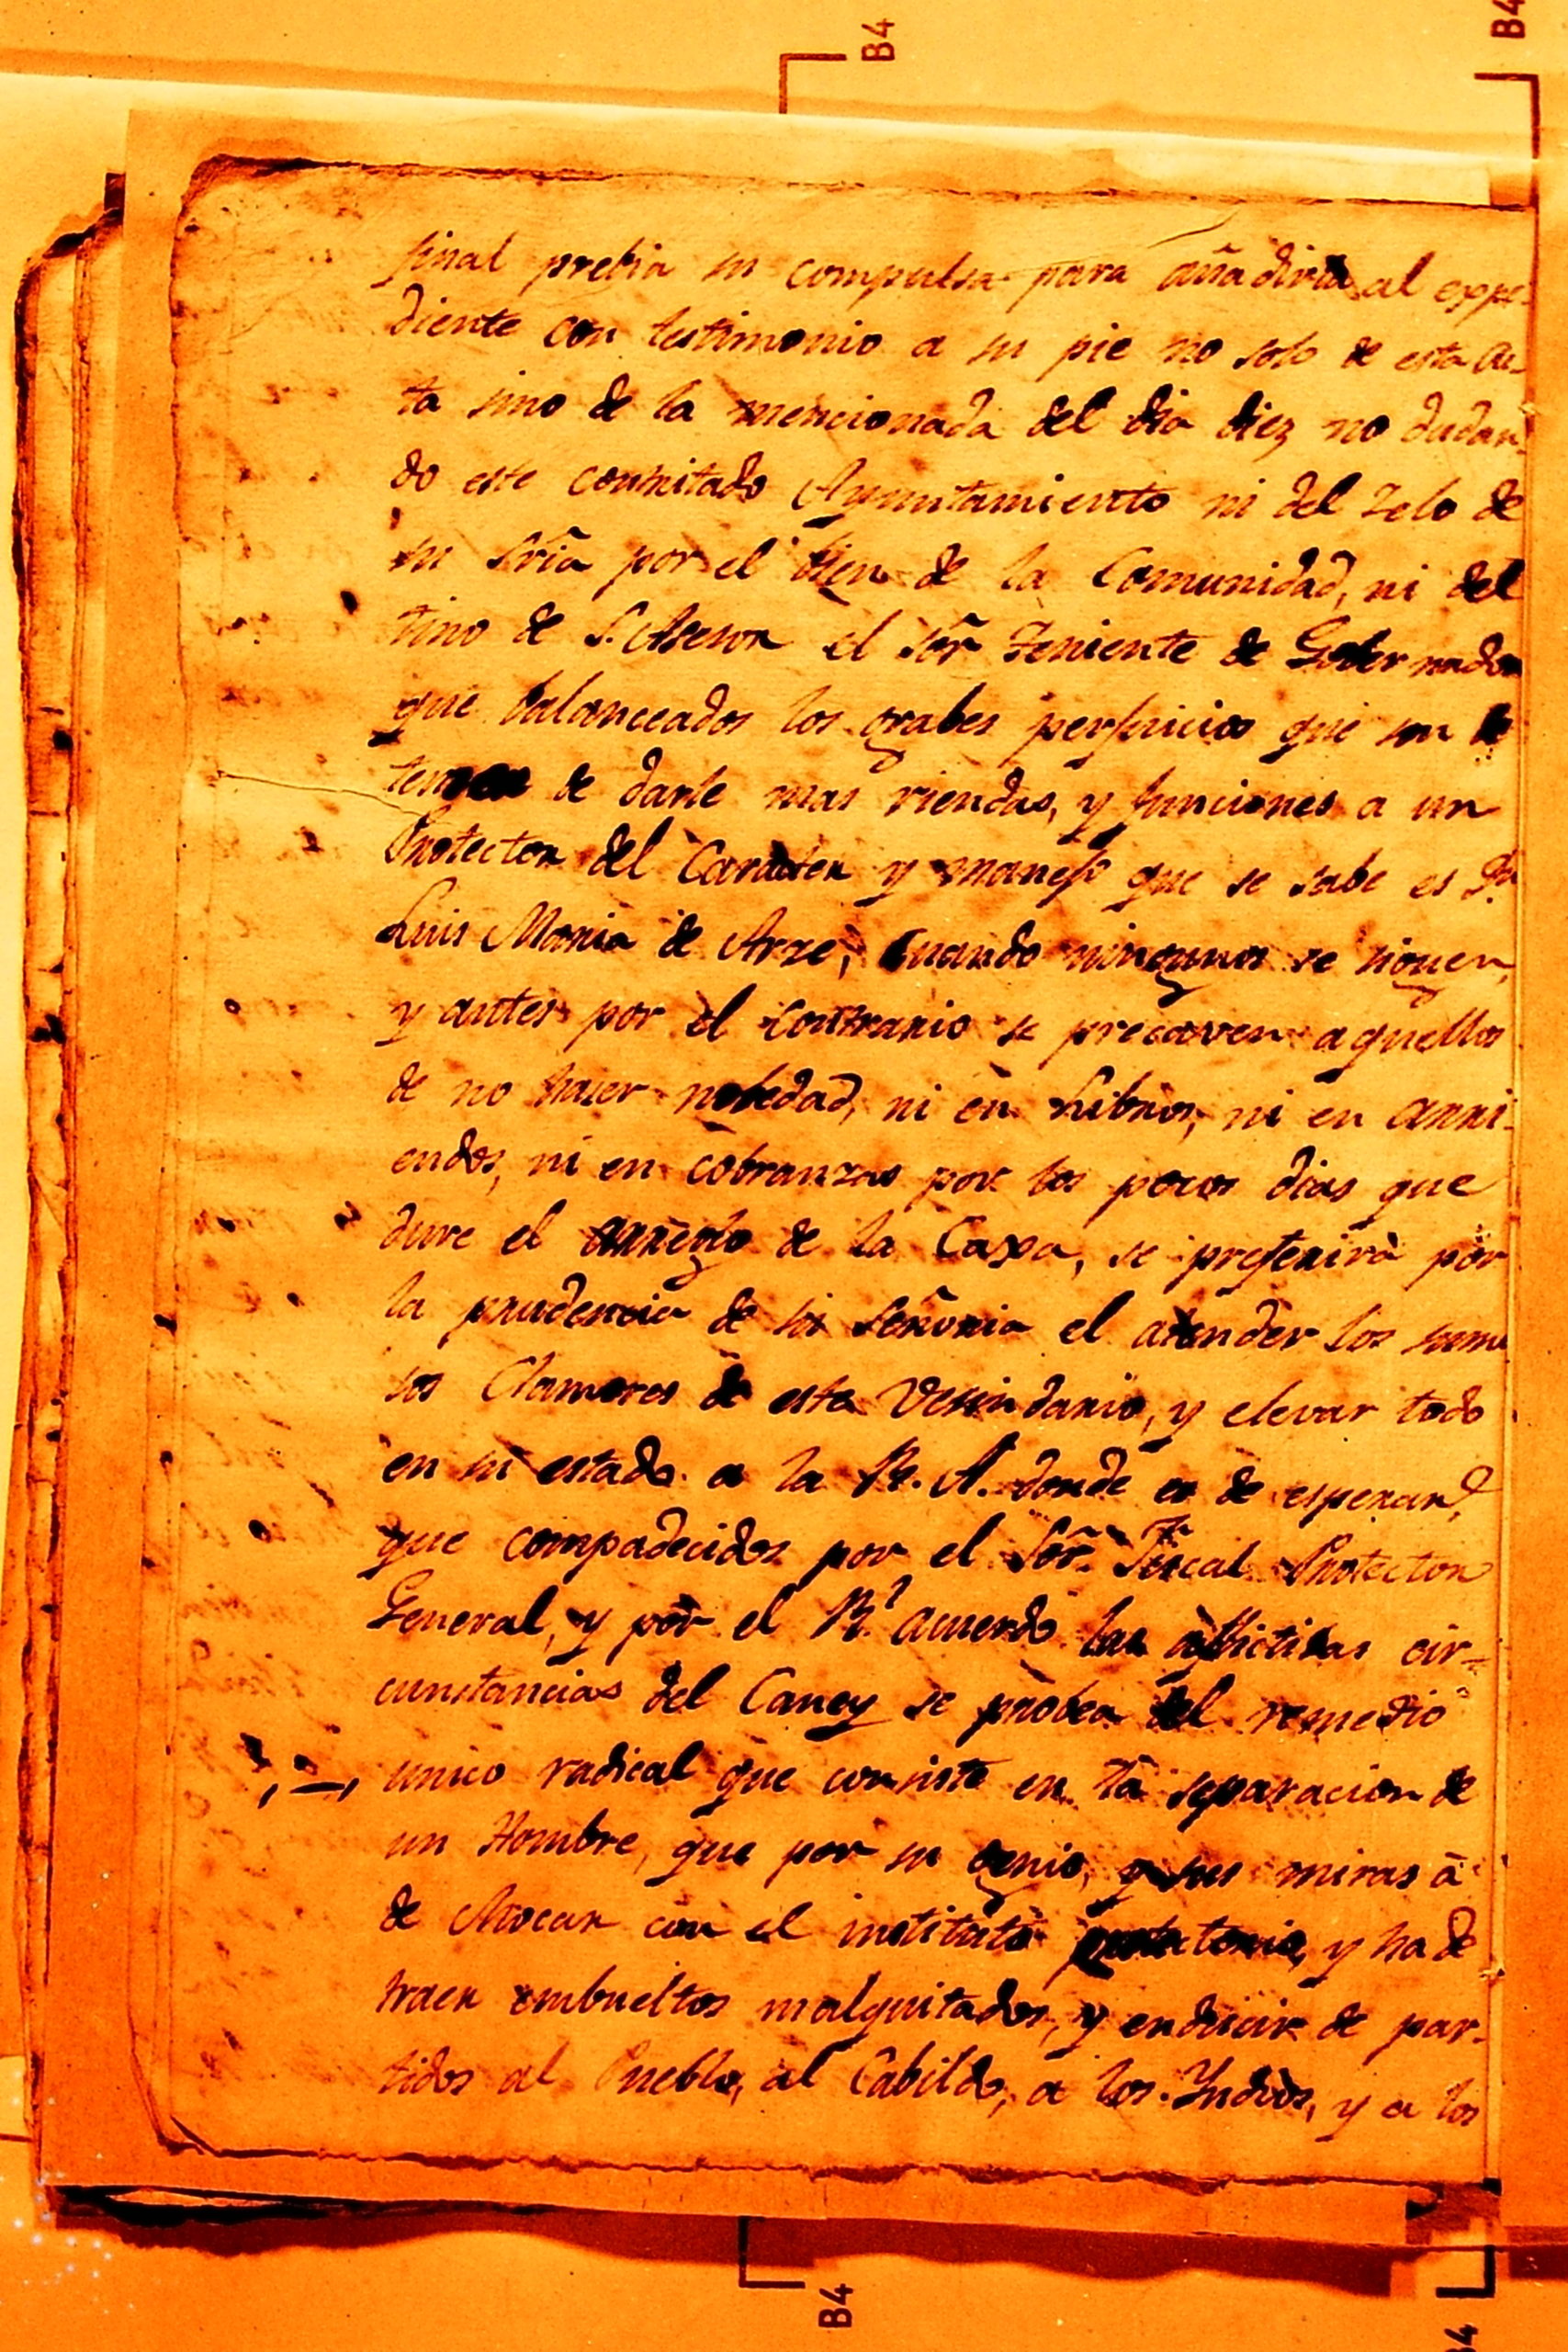 B4
B4
final prebia su compulsa para añadirla al expe-
diente con testimonio a su pie no solo de esta Ac-
ta sino de la mencionada del dia diez no dudan-
do este conmitado Ayuntamiento ni del zelo de
su Sria por el bien de la Comunidad, ni del
tino de S. Asesor el Sōr Teniente de Gobernador
que balanceados los grabes perjuicios que son de
temer de darle mas riendas, y funciones a un
Protector del Caracter y manejo que se sabe es Dn
Luis Maria de Arze; Cuando ningunos se siguen,
y antes por el contrario se precaven aquellos
de no haser nobedad, ni en Libros, ni en arri-
endos, ni en cobranzas por los pocos dias que
dure el arreglo de la Caxa, se preferirà por
la prudencia de su señoria el atender los sumi
sos Clamores de este Vesindario, y elevar todo
en su estado a la R. A. donde es de esperar,
que compadecidos por el Sōr. Fiscal Protector
General, y por el Rl. acuerdo las aflictibas cir-
cunstancias del Caney se probea del remedio
unico radical que consiste en la separacion de
un Hombre, que por su genio, y sus miras à
de chocar con el instituto protectorio, y ha de
traer embueltos malquitados, y enducir de par-
tidos al Pueblo, al Cabildo, a los Yndios, y a los
B4
B4